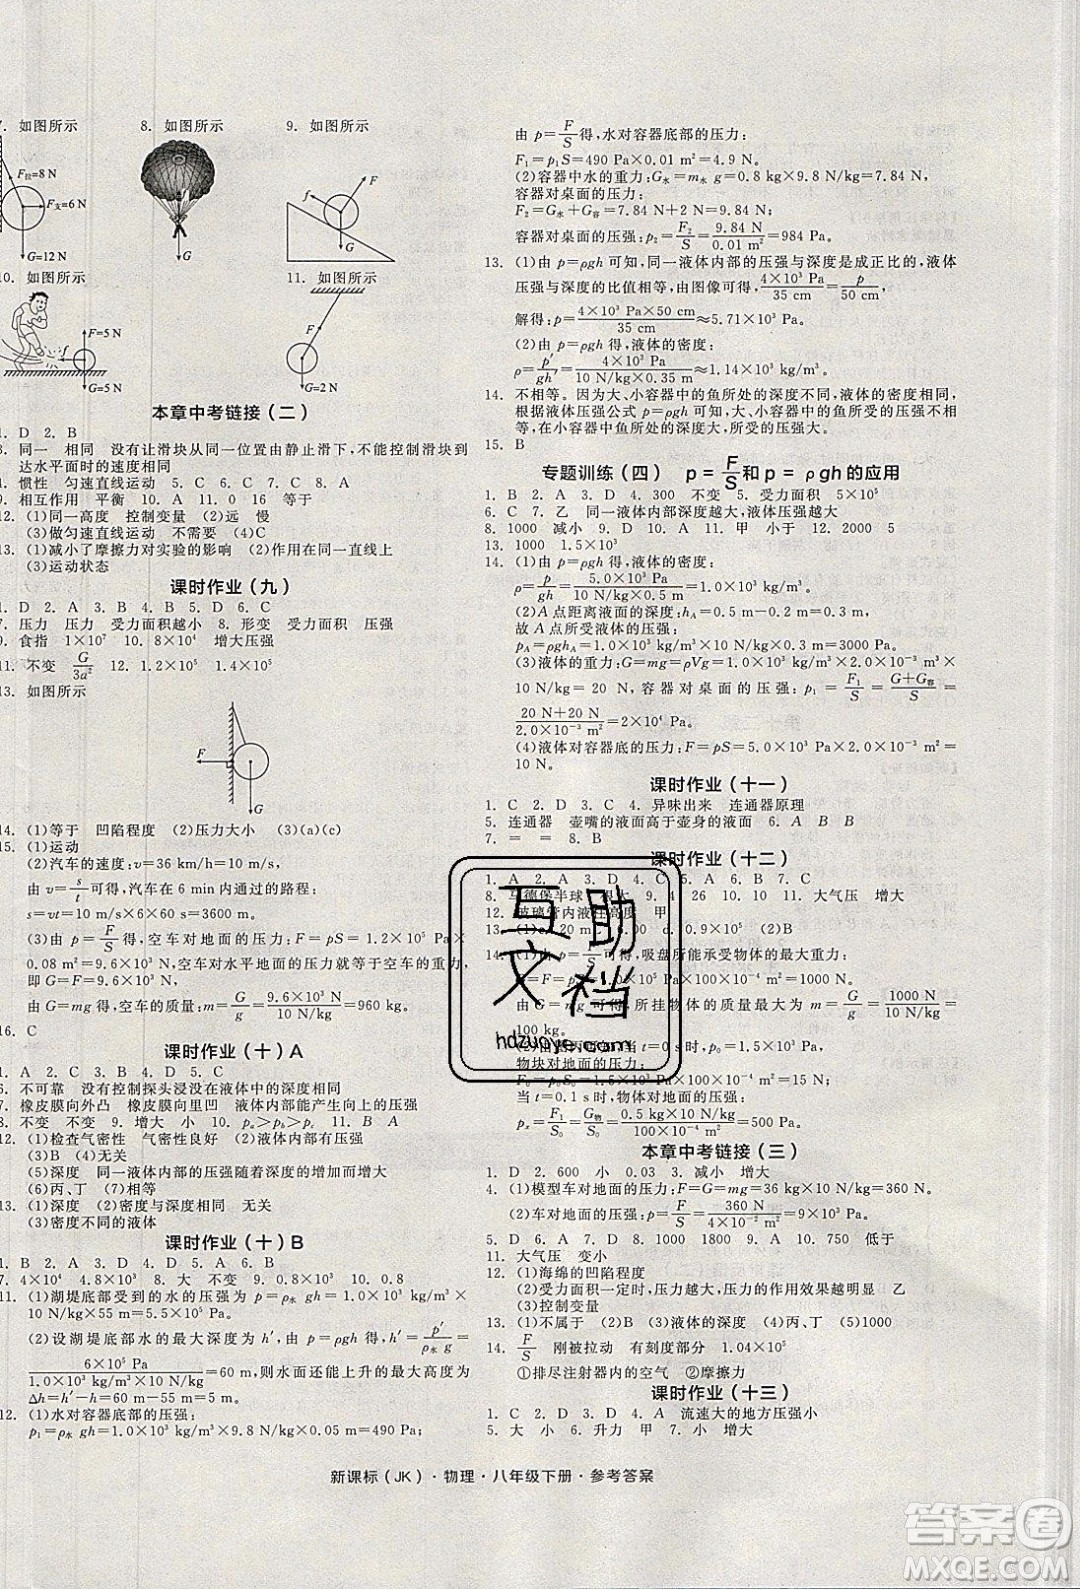 7. 如图所示
8. 如图所示
9. 如图所示
F拉=8 N
F支=6 N
G=12 N
G
f
F
G
10. 如图所示
11. 如图所示
F=5 N
f
G=5 N
F
G=2 N
本章中考链接（二）
1. D 2. D 2. B
3. 同一 相同 没有让滑块从同一位置由静止滑下,不能控制滑块到
达水平面时的速度相同
4. 惯性 匀速直线运动 5. C 6. C 7. C 8. A
9. 相互作用 平衡 10. 2 11. 0 16 等于
12. (1)同一高度 控制变量 (2)远 慢
(3)做匀速直线运动 不变 (4)C
13. (1)减小了摩擦力对实验的影响 (2)作用在同一直线上
(3)运动状态
课时作业（九）
1. D 2. A 3. B 4. B 5. D 6. C
7. 压力 压力 受力面积越小 8. 形变 受力面积 压强
9. 食指 1×10⁷ 10. 8×10⁴ 增大压强
11. 不变 G/3a² 12. 1.2×10⁵ 1.4×10⁵
13. 如图所示
F
G
14. (1)等于 凹陷程度 (2)压力大小 (3)(a)(c)
15. (1)运动
(2)汽车的速度:v=36 km/h=10 m/s,
由 v=s/t 得,汽车在 6 min内通过的路程:
s=vt=10 m/s×6×60 s=3600 m.
(3)由 p=F/S 得,空车对地面的压力:F=pS=1.2×10⁵ Pa×
0.08 m²=9.6×10³ N,空车对水平地面的压力就等于空车的重力,
即 G=F=9.6×10³ N,
由 G=mg 得,空车的质量:m=G/g=9.6×10³ N/10 N/kg=960 kg.
16. C
课时作业（十）A
1. A 2. C 3. D 4. D 5. C
6. 不可靠 没有控制探头浸没在液体中的深度相同
7. 橡皮膜向外凸 橡皮膜向里凹 液体内部能产生向上的压强
8. 不变 不变 9. 增大 小 10. pₐ>p_b>p_c 11. B A
12. (1)检查气密性 气密性良好 (2)液体内部有压强
(3)B (4)无关
(5)深度 同一液体内部的压强随着深度的增加而增大
(6)丙、丁 (7)相等
13. (1)深度 (2)密度与深度相同 无关
(3)密度不同的液体
课时作业（十）B
1. B 2. A 3. D 4. D 5. A 6. B
7. 4×10⁴ 4.8×10³ 8. 大 不变 9. A 10. A
11. (1)湖堤底部受到的水的压强:p=ρ水 gh=1.0×10³ kg/m³
×10 N/kg×55 m=5.5×10⁵ Pa.
(2)设湖堤底部水的最大深度为 h′,由 p=ρgh 得,h′=p′/ρ水 g=
6×10⁵ Pa/1.0×10³ kg/m³×10 N/kg=60 m,则水面还能上升的最大高度为
Δh=h′−h=60 m−55 m=5 m.
12. (1)水对容器底部的压强:
p₁=ρ水 gh=1.0×10³ kg/m³×10 N/kg×0.05 m=490 Pa,
由 p=F/S得,水对容器底部的压力:
F₁=p₁S=490 Pa×0.01 m²=4.9 N.
(2)容器中水的重力:G水=m水 g=0.8 kg×9.8 N/kg=7.84 N,
容器对桌面的压力:
F₂=G水+G容=7.84 N+2 N=9.84 N;
容器对桌面的压强:p₂=F₂/S=9.84 N/0.01 m²=984 Pa.
13. (1)由 p=ρgh 可知,同一液体内部的压强与深度是成正比的,液体
压强与深度的比值相等,由图像可得,4×10³ Pa/35 cm=p/50 cm,
解得:p=4×10³ Pa×50 cm/35 cm≈5.71×10³ Pa.
(2)由 p=ρgh 得,液体的密度:
ρ=p′/gh′=4×10³ Pa/10 N/kg×0.35 m≈1.14×10³ kg/m³.
14. 不相等。因为大、小容器中的鱼所处的深度不同,液体密度相同,
根据液体压强公式 p=ρgh 可知,大、小容器中的鱼所受的压强不
相等,在大容器中鱼所处的深度大,故大容器中的鱼所受的压强大.
15. B
专题训练（四） p=F/S和 p=ρgh的应用
1. B 2. A 3. D 4. 300 不变 5. 受力面积 5×10⁵
6. C 7. 乙 同一液体内部深度越大,液体压强越大
8. 1000 减小 9. D 10. A 11. 甲 小于 12. 2000 5
13. 1000 1.5×10³
14. (1)由 p=ρgh 得,液体的密度:
ρ=p/gh=5.0×10³ Pa/10 N/kg×0.5 m=1.0×10³ kg/m³.
(2)A点距离液面的深度:hA=0.5 m−0.2 m=0.3 m,
故 A点所受的液体的压强:
pA=ρghA=1.0×10³ kg/m³×10 N/kg×0.3 m=3000 Pa.
(3)液体的重力:G=mg=ρVg=1.0×10³ kg/m³×2.0×10⁻³ m³×
10 N/kg=20 N,容器对桌面的压强:p₁=F₁/S=G+G容/S=
20 N+20 N/2.0×10⁻³ m²=2×10⁴ Pa.
(4)液体对容器底的压力:F=pS=5.0×10³ Pa×2.0×10⁻³ m²=10 N.
课时作业（十一）
1. C 2. D 3. C 4. 异味出来 连通器原理
5. 连通器 壶嘴的液面高于壶身的液面 6. A B B
7. = = 8. B
课时作业（十二）
1. A 2. A 3. A 4. C 5. A 6. B 7. C
8. 马德保半球 很大 9. 4 26 10. 10 11. 大气压 增大
12. 玻璃管内液柱高度 甲
13. (1)c 20 m 6.00 d 0.9×10⁵ (2)B
14. (1)由 p=F/S可得,吸盘所能承受物体的最大重力:
由 G=mg 可得,所挂物体的质量最大为 m=G/g=1000 N/10 N/kg=
100 kg.
当 t=0 s 时,p₀=1.5×10³ Pa,
物块对地面的压力:
F₀=p₀S₀=1.5×10³ Pa×
当 t=0.1 s时,物体对地面的压强:
本章中考链接（三）
1. D 2. 600 小 0.03 3. 减小 增大
4. (1)模型车对地面的压力:F=G=mg=36 kg×10 N/kg=360 N.
(2)车对地面的压强:p=F/S=360 N/4×10⁻² m²=9000 Pa.
5. D 6. A 7. D 8. 1000 1800 9. D 10. 750 低于
11. 大气压 变小
12. (1)海绵的凹陷程度
(2)受力面积一定时,压力越大,压力的作用效果越明显 乙
(3)控制变量
13. (1)不属于 (2)B (3)液体密度 (4)丙、丁 (5)1000
14. F/S 刚被拉动 有刻度部分 1.04×10⁵
①排尽注射器内的空气 ②摩擦力
课时作业（十三）
1. C 2. D 3. D 4. A 流速大的地方压强小
5. 大 小 6. 升力 甲 7. 大 小
新课标（JK）·物理·八年级下册·参考答案
互助
文档
hdzuoye.com
答案圈
MXQE.COM